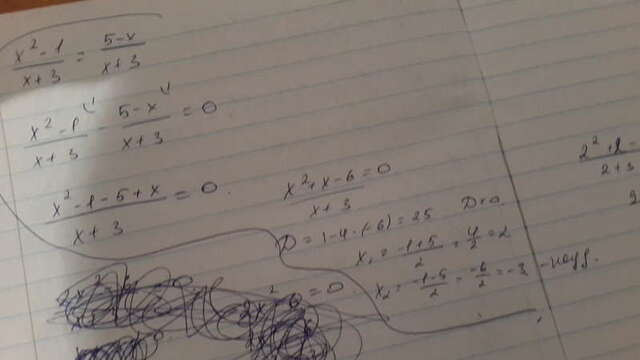 x² - 1 / x + 3 = 5 - x / x + 3
x² - 1 / x + 3 - 5 - x / x + 3 = 0
x² - 1 - 5 + x / x + 3 = 0.
x² + x - 6 / x + 3 = 0
D = 1 - 4 · (-6) = 25 D > 0
x₁ = -1 + 5 / 2 = 4 / 2 = 2
x₂ = -1 - 5 / 2 = -6 / 2 = -3
= 0
2² + 1 - / 2 + 3